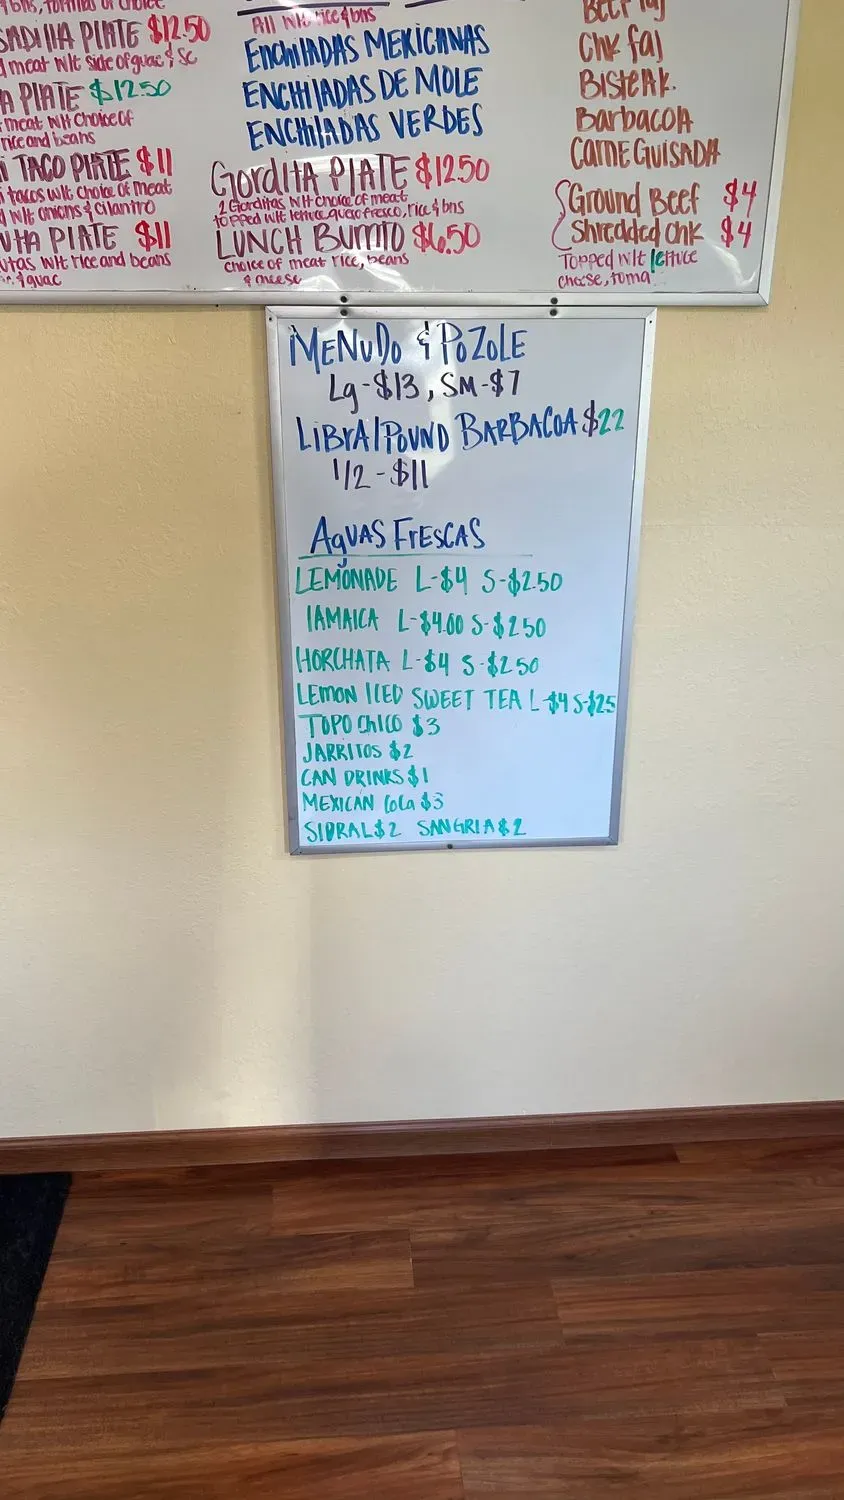 SADILLA PLATE $12.50
meat wit side of guac & sc
A PLATE $12.50
meat wit choice of
rice and beans
i TACO PLATE $11
i tacos wit choice of meat
d wit onions & cilantro
UTA PLATE $11
utas wit rice and beans
& guac
All wit rice & bns
ENCHILADAS MEXICANAS
ENCHILADAS DE MOLE
ENCHILADAS VERDES
Gordita PLATE $12.50
2 Gorditas wit choice of meat
topped wit lettuce queso fresco, rice & bns
LUNCH Burrito $6.50
choice of meat rice, beans
& cheese
Beef faj
Chk faj
Bisteak.
Barbacoa
CARNE GUISADA
Ground Beef $4
Shredded Chk $4
Topped wit lettuce
cheese, toma
MENUDO & POZOLE
Lg-$13, SM-$7
LIBRA/POUND BARBACOA $22
1/2 - $11
AGUAS FRESCAS
LEMONADE L-$4 S-$2.50
JAMAICA L-$4.00 S-$2.50
HORCHATA L-$4 S-$2.50
LEMON ICED SWEET TEA L-$4 S-$2.5
TOPO CHICO $3
JARRITOS $2
CAN DRINKS $1
MEXICAN Cola $3
SIDRAL $2 SANGRIA $2